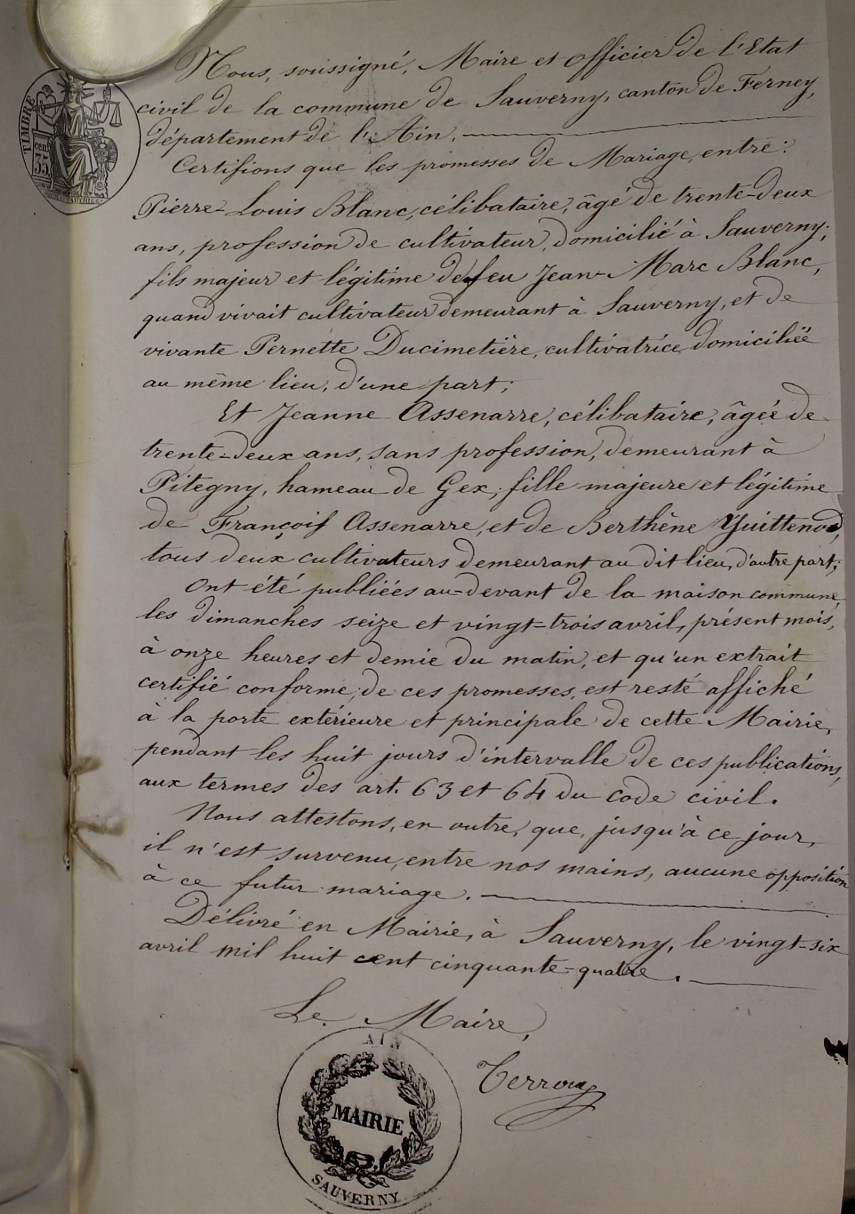 TIMBRE
35
cen.
Nous, soussigné, Maire et officier de l'Etat
civil de la commune de Sauverny, canton de Ferney,
département de l'Ain.
Certifions que les promesses de Mariage, entre :
Pierre-Louis Blanc, célibataire, âgé de trente-deux
ans, profession de cultivateur, domicilié à Sauverny;
fils majeur et légitime de feu Jean-Marc Blanc,
quand vivait cultivateur demeurant à Sauverny, et de
vivante Pernette Ducimetière, cultivatrice domiciliée
au même lieu, d'une part;
Et Jeanne Assenarre, célibataire, âgée de
trente-deux ans, sans profession, demeurant à
Pitegny, hameau de Gex, fille majeure et légitime
de François Assenarre, et de Berthène
tous deux cultivateurs demeurant au dit lieu, d'autre part;
Ont été publiées au-devant de la maison commune
les dimanches seize et vingt-trois avril, présent mois,
à onze heures et demie du matin, et qu'un extrait
certifié conforme, de ces promesses, est resté affiché
à la porte extérieure et principale de cette Mairie,
pendant les huit jours d'intervalle de ces publications,
aux termes des art. 63 et 64 du code civil.
Nous attestons, en outre, que, jusqu'à ce jour,
il n'est survenu, entre nos mains, aucune opposition
à ce futur mariage.
Délivré en Mairie, à Sauverny, le vingt-six
avril mil huit cent cinquante-quatre.
Le Maire,
Terroux
AIN
MAIRIE
SAUVERNY